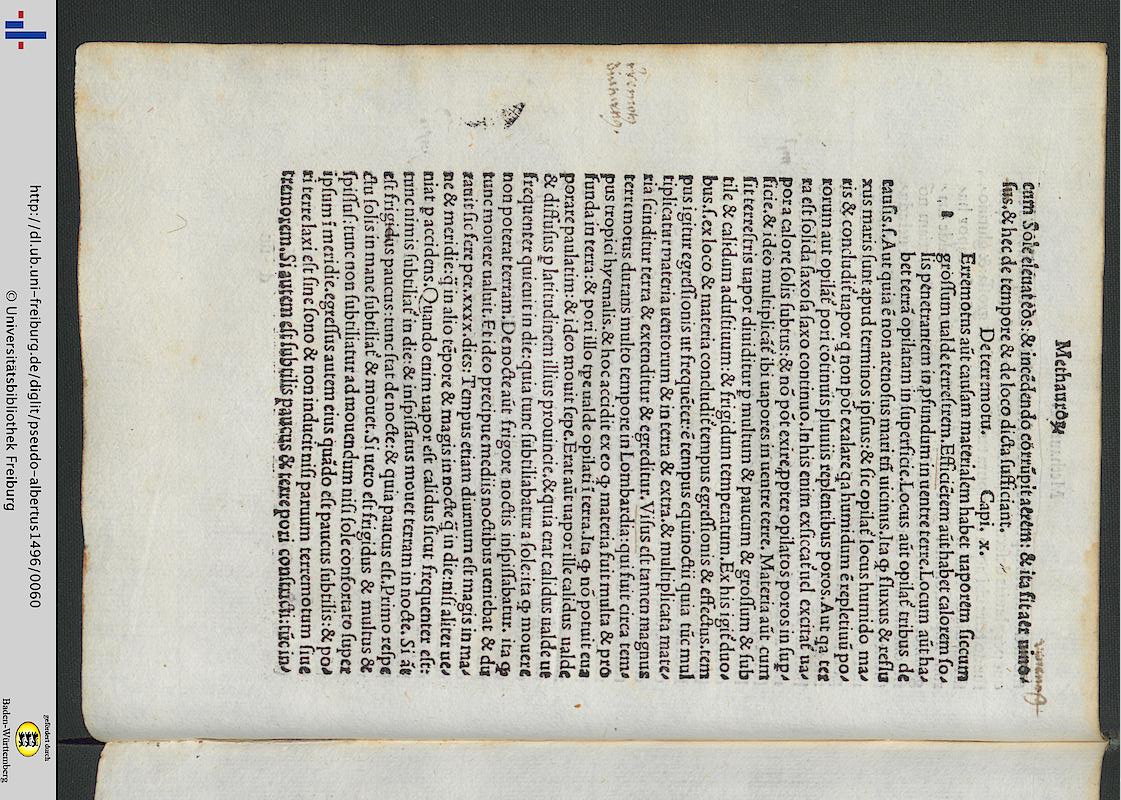 Methauroꝝ
cum Sole eleuatōs: & incēdendo cōrrūpit aerem: & ita fit aer uiro⸗
sus. & hec de tempore & de loco dicta sufficiant.
De terremotu. Capi. x.
Erremotus aūt causam materialem habet uaporem siccum
grossum ualde terrestrem. Efficiētem aūt habet calorem so⸗
lis penetrantem in ꝓfundum in uentre terre. Locum aūt ha⸗
bet terrā opilatam in superficie. Locus aūt opilat̄ tribus de
causis. s. Aut quia ē non arenosus mari tn̄ uicinus. Ita ꝙ fluxus & reflu
xus maris sunt apud terminos ipsius: & sic opilat̄ locus humido ma⸗
ris & concludit̄ uapor q̄ non pōt exalare qa humidum ē repletiuū po⸗
rorum aut opilāt̄ pori cōtinuis pluuiis replentibus poros. Aut qa ter
ra est solida saxosa saxo continuo. In his enim exsiccat̄ uel excitat̄ ua⸗
por a calore solis subtus: & nō pōt exire ꝓpter opilatos poros in sup̄⸗
ficie. & ideo multiplicāt̄ ibi uapores in uentre terre. Materia aūt cum
sit terrestris uapor diuiditur ꝑ multum & paucum & grossum & sub
tile & calidum adustiuum: & frigidum temperatum. Ex his igit̄ duo⸗
bus. s. ex loco & materia concludit̄ tempus egressionis & effectus. tem
pus igitur egressionis ut frequēter: ē tempus equinoctii quia tūc mul
tiplicatur materia uentorum & in terra & extra. & multiplicata mate⸗
ria scinditur terra & extenditur & egreditur. Visus est tamen magnus
terremotus durans multo tempore in Lombardia: qui fuit circa tem⸗
pus tropici hyemalis. & hoc accidit ex eo ꝙ materia fuit multa & pro
funda in terra: & pori illo tpe ualde opilati ī terra. Ita ꝙ nō potuit eua
porare paulatim: & ideo mouit sepe. Erat aūt uapor ille calidus ualde
& diffusus ꝑ latitudinem illius prouincie. & quia erat calidus ualde ut
frequenter quieuit in die: quia tunc subtiliabatur a sole: ita ꝙ mouere
non poterat terram. De nocte aūt frigore noctis inspissabatur. ita ꝙ
tunc mouere ualuit. Et ideo precipue mediis noctibus ueniebat & du
rauit sic fere per. xxx. dies: Tempus etiam diurnum est magis in ma⸗
ne & meridie: q̄ in alio tēpore & magis in nocte q̄ in die: nisi aliter ue⸗
niat ꝑ accidens. Quando enim uapor est calidus sicut frequenter est:
tunc nimis subtiliat̄ in die: & inspissatus mouet terram in nocte. Si āt
est frigidus paucus: tunc stat de nocte: & quia paucus est. Primo respe
ctu solis in mane subtiliat̄ & mouet. Si uero est frigidus & multus &
spissus: tunc non subtiliatur ad mouendum nisi sole confortato super
ipsum ī meridie. egressus autem eius quādo est paucus subtilis: & po⸗
ri terre laxi est sine sono & non inducet nisi paruum terremotum siue
tremorem. Si autem est subtilis paucus & terre pori constricti: tūc in⸗
http://dl.ub.uni-freiburg.de/diglit/pseudo-albertus1496/0060
© Universitätsbibliothek Freiburg
gefördert durch
Baden-Württemberg